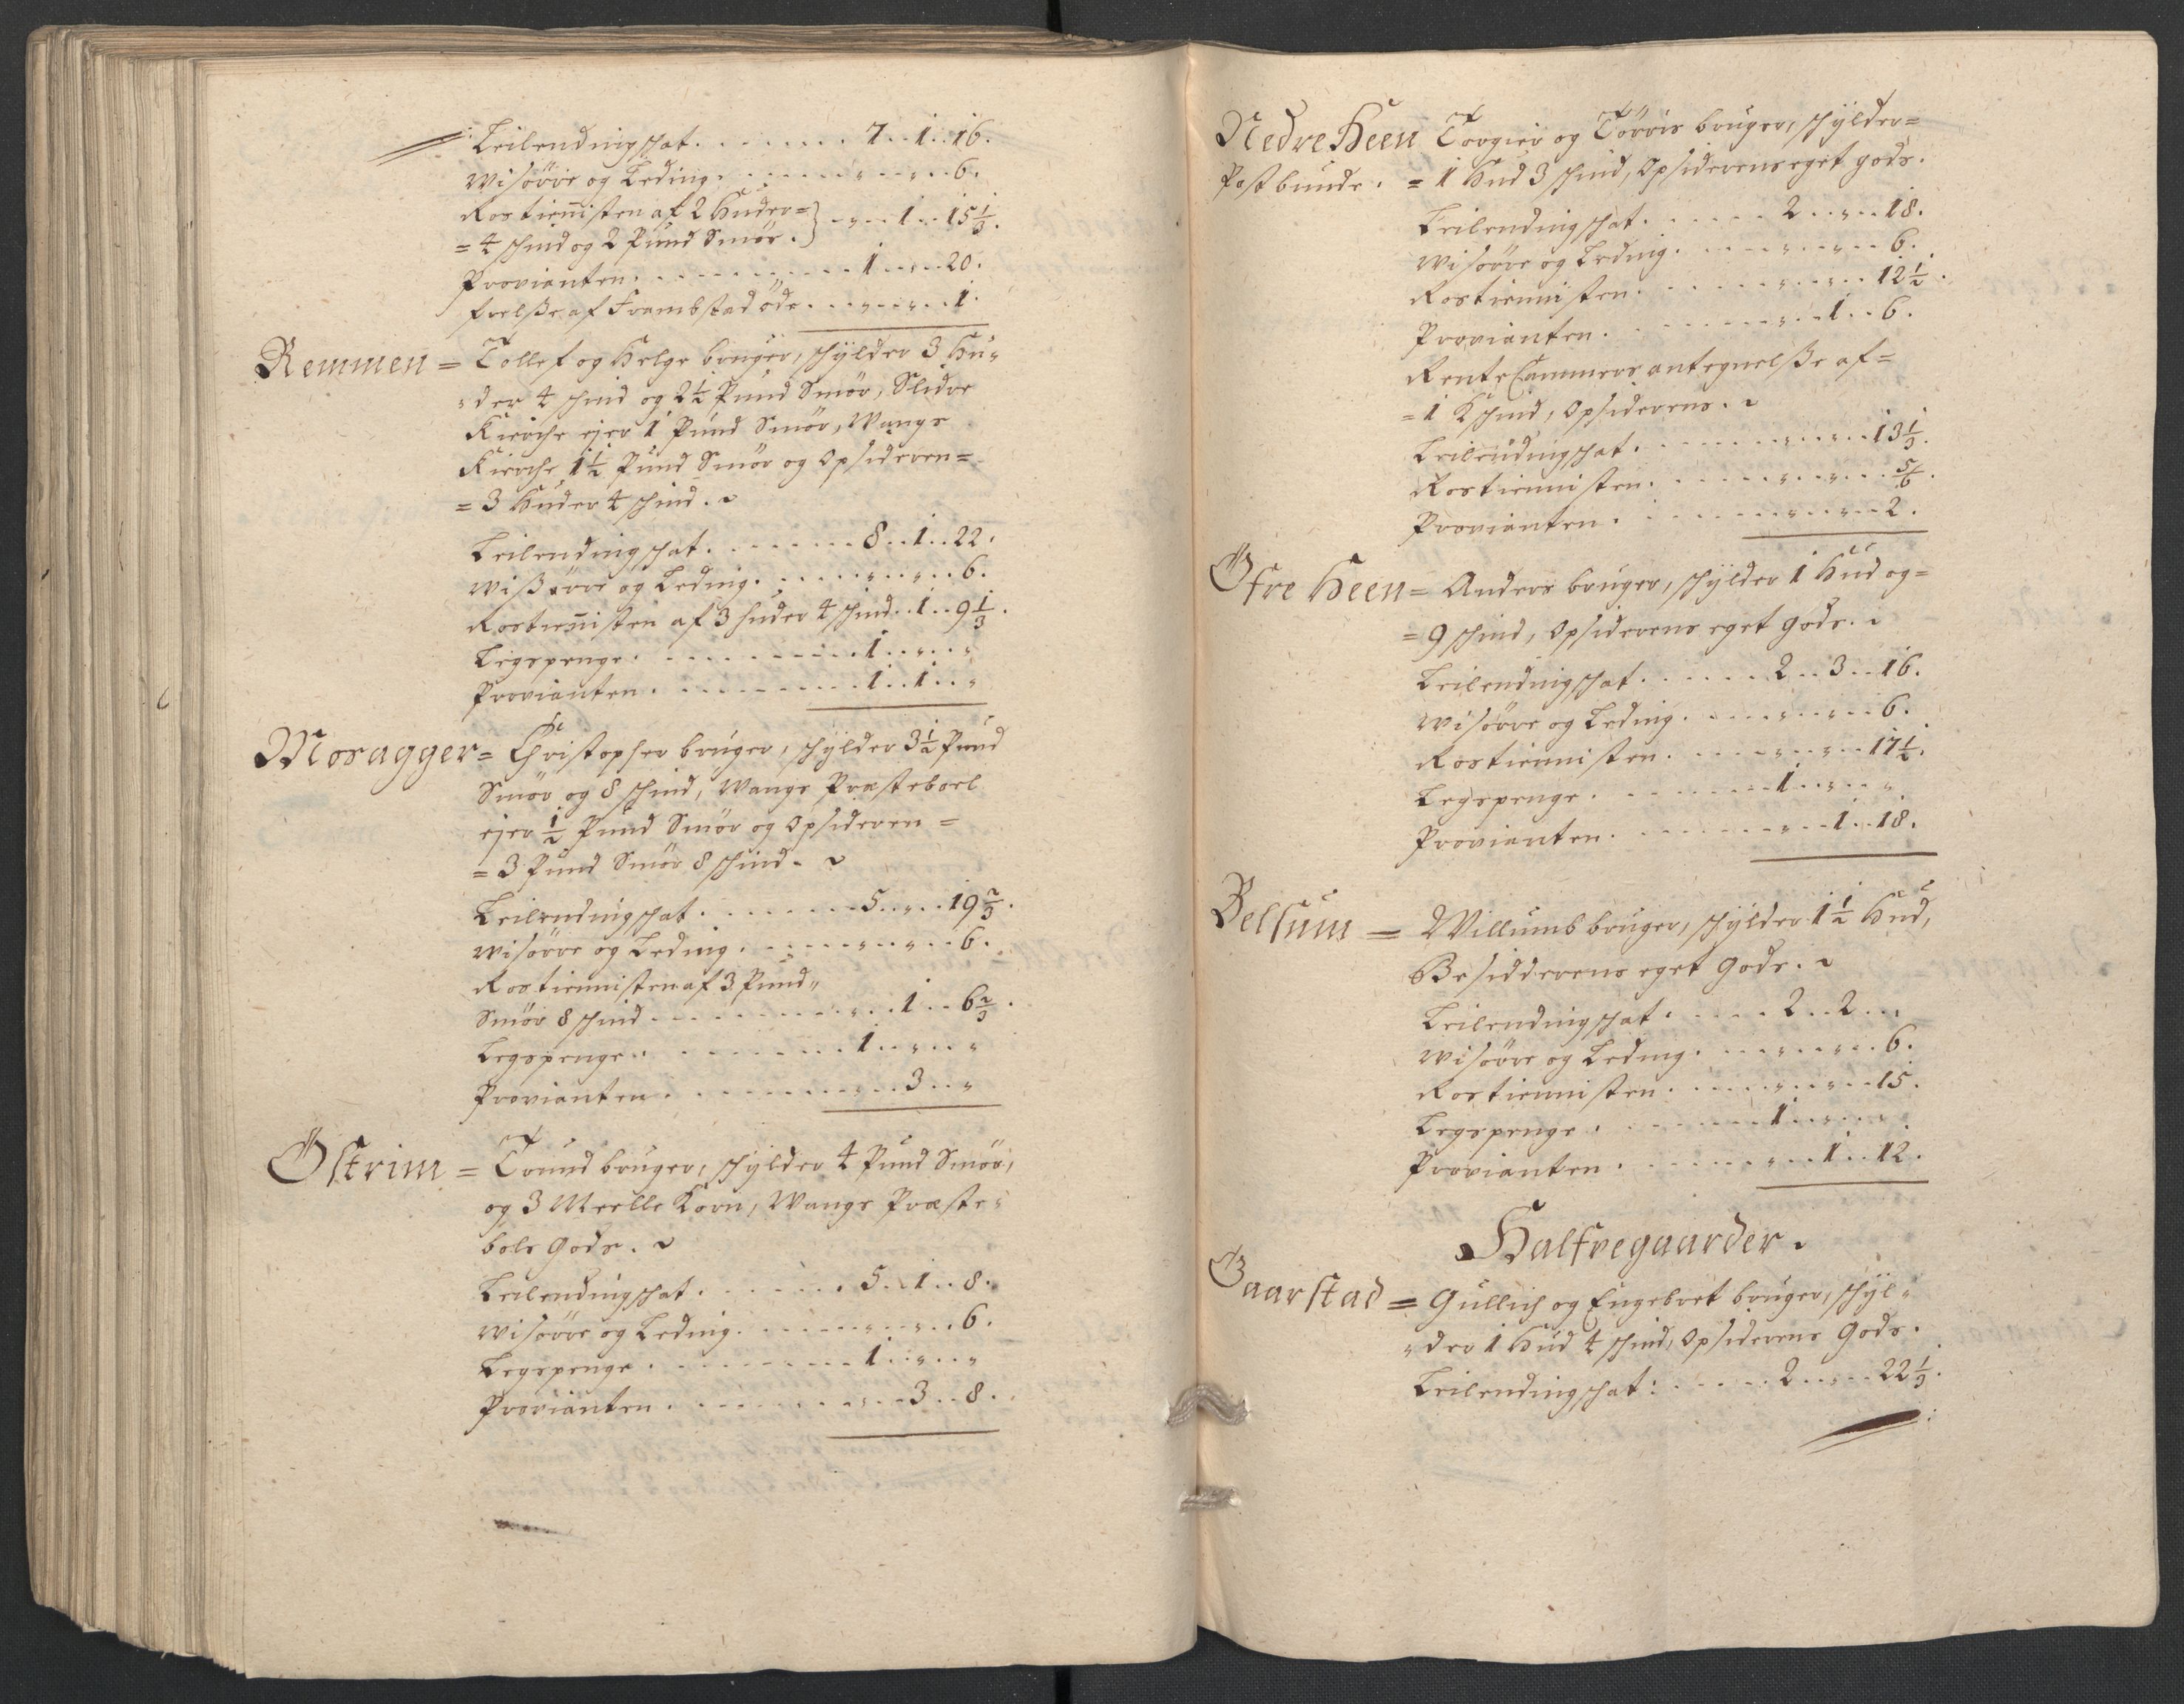 Leilendingschat. . . . . . . . 7 . . 1 . . 16.
Wisörre og Leding. . . . . . . „ . . „ . . 6.
Rostiennisten af 2 Huder=
= 4 schind og 2 Pund Smör. } . „ . . 1 . . 15 1/3.
Provianten. . . . . . . . . . 1 . . „ . . 20.
frelße af Frambstad öde. . . „ . . „ . . 1.
Remmen = Tollef og Helge bruger, schylder 3 Hu„
„der 4 schind og 2 1/2 Pund Smör, Slidre
Kierche ejer 1 Pund Smör, Wangs
Kierche 1 1/2 Pund Smör og Opsideren=
= 3 Huder 4 schind.
Leilendingschat. . . . . . . . 8 . . 1 . . 22.
Wißörre og Leding. . . . . . „ . . „ . . 6.
Rostiennisten af 3 huder 4 schind. . 1 . . 9 1/3.
Legspenge. . . . . . . . . . 1 . . „ . . „
Provianten. . . . . . . . . . 1 . . 1 . . „
Moragger = Christopher bruger, schylder 3 1/2 Pund
Smör og 8 schind, Wangs Præsteboel
ejer 1/2 Pund Smör og Opsideren =
= 3 Pund Smör 8 schind.
Leilendingschat. . . . . . . . 5 . . „ . . 19 2/3.
Wisörre og Leding. . . . . . „ . . „ . . 6.
Rostiennisten af 3 Pund„
Smör 8 schind . . . . . . . . „ . . 1 . . 6 2/3.
Legspenge. . . . . . . . . . 1 . . „ . . „
Provianten. . . . . . . . . . „ . . 3 . . „
Östrim = Trund bruger, schylder 4 Pund Smör,
og 3 Meelle Korn, Wangs Præste„
bols Gods.
Leilendingschat. . . . . . . 5 . . 1 . . 8.
Wisörre og Leding. . . . . . „ . . „ . . 6.
Legspenge. . . . . . . . . . 1 . . „ . . „
Provianten. . . . . . . . . . „ . . 3 . . 8.
Nedre Heen Torgier og Törris bruger, schylder=
Postbunde. = 1 Hud 3 schind, Opsiderens eget gods.
Leilendingschat. . . . . . 2 . . „ . . 18.
Wisörre og Leding. . . . . „ . . „ . . 6.
Rostiennisten. . . . . . . „ . . „ . . 12 1/2.
Provianten. . . . . . . . „ . . 1 . . 6.
RenteCammers antegnelße af=
= 1 Kschind, Opsiderens.
Leilendingschat. . . . . . . „ . . „ . . 13 1/3.
Rostiennisten. . . . . . . „ . . „ . . 5/6.
Provianten. . . . . . . . „ . . „ . . 2.
Öfre Heen = Anders bruger, schylder 1 Hud og=
= 9 schind, Opsiderens eget Gods.
Leilendingschat. . . . . . 2 . . 3 . . 16.
Wisörre og Leding. . . . . „ . . „ . . 6.
Rostiennisten. . . . . . . „ . . „ . . 17 1/2.
Legspenge. . . . . . . . . 1 . . „ . . „
Provianten. . . . . . . . „ . . 1 . . 18.
Belsum = Willumb bruger, schylder 1 1/2 Hud,
Besidderens eget Gods.
Leilendingschat. . . . . . 2 . . 2 . . „
Wisörre og Leding. . . . . „ . . „ . . 6.
Rostiennisten. . . . . . . „ . . „ . . 15.
Legspenge. . . . . . . . . 1 . . „ . . „
Provianten. . . . . . . . „ . . 1 . . 12.
Halfvegaarder.
Gaarstad = Gullich og Engebret bruger, schyl„
„der 1 Hud 4 schind, Opsiderens Gods.
Leilendingschat: . . . . . 2 . . „ . . 22 1/3.